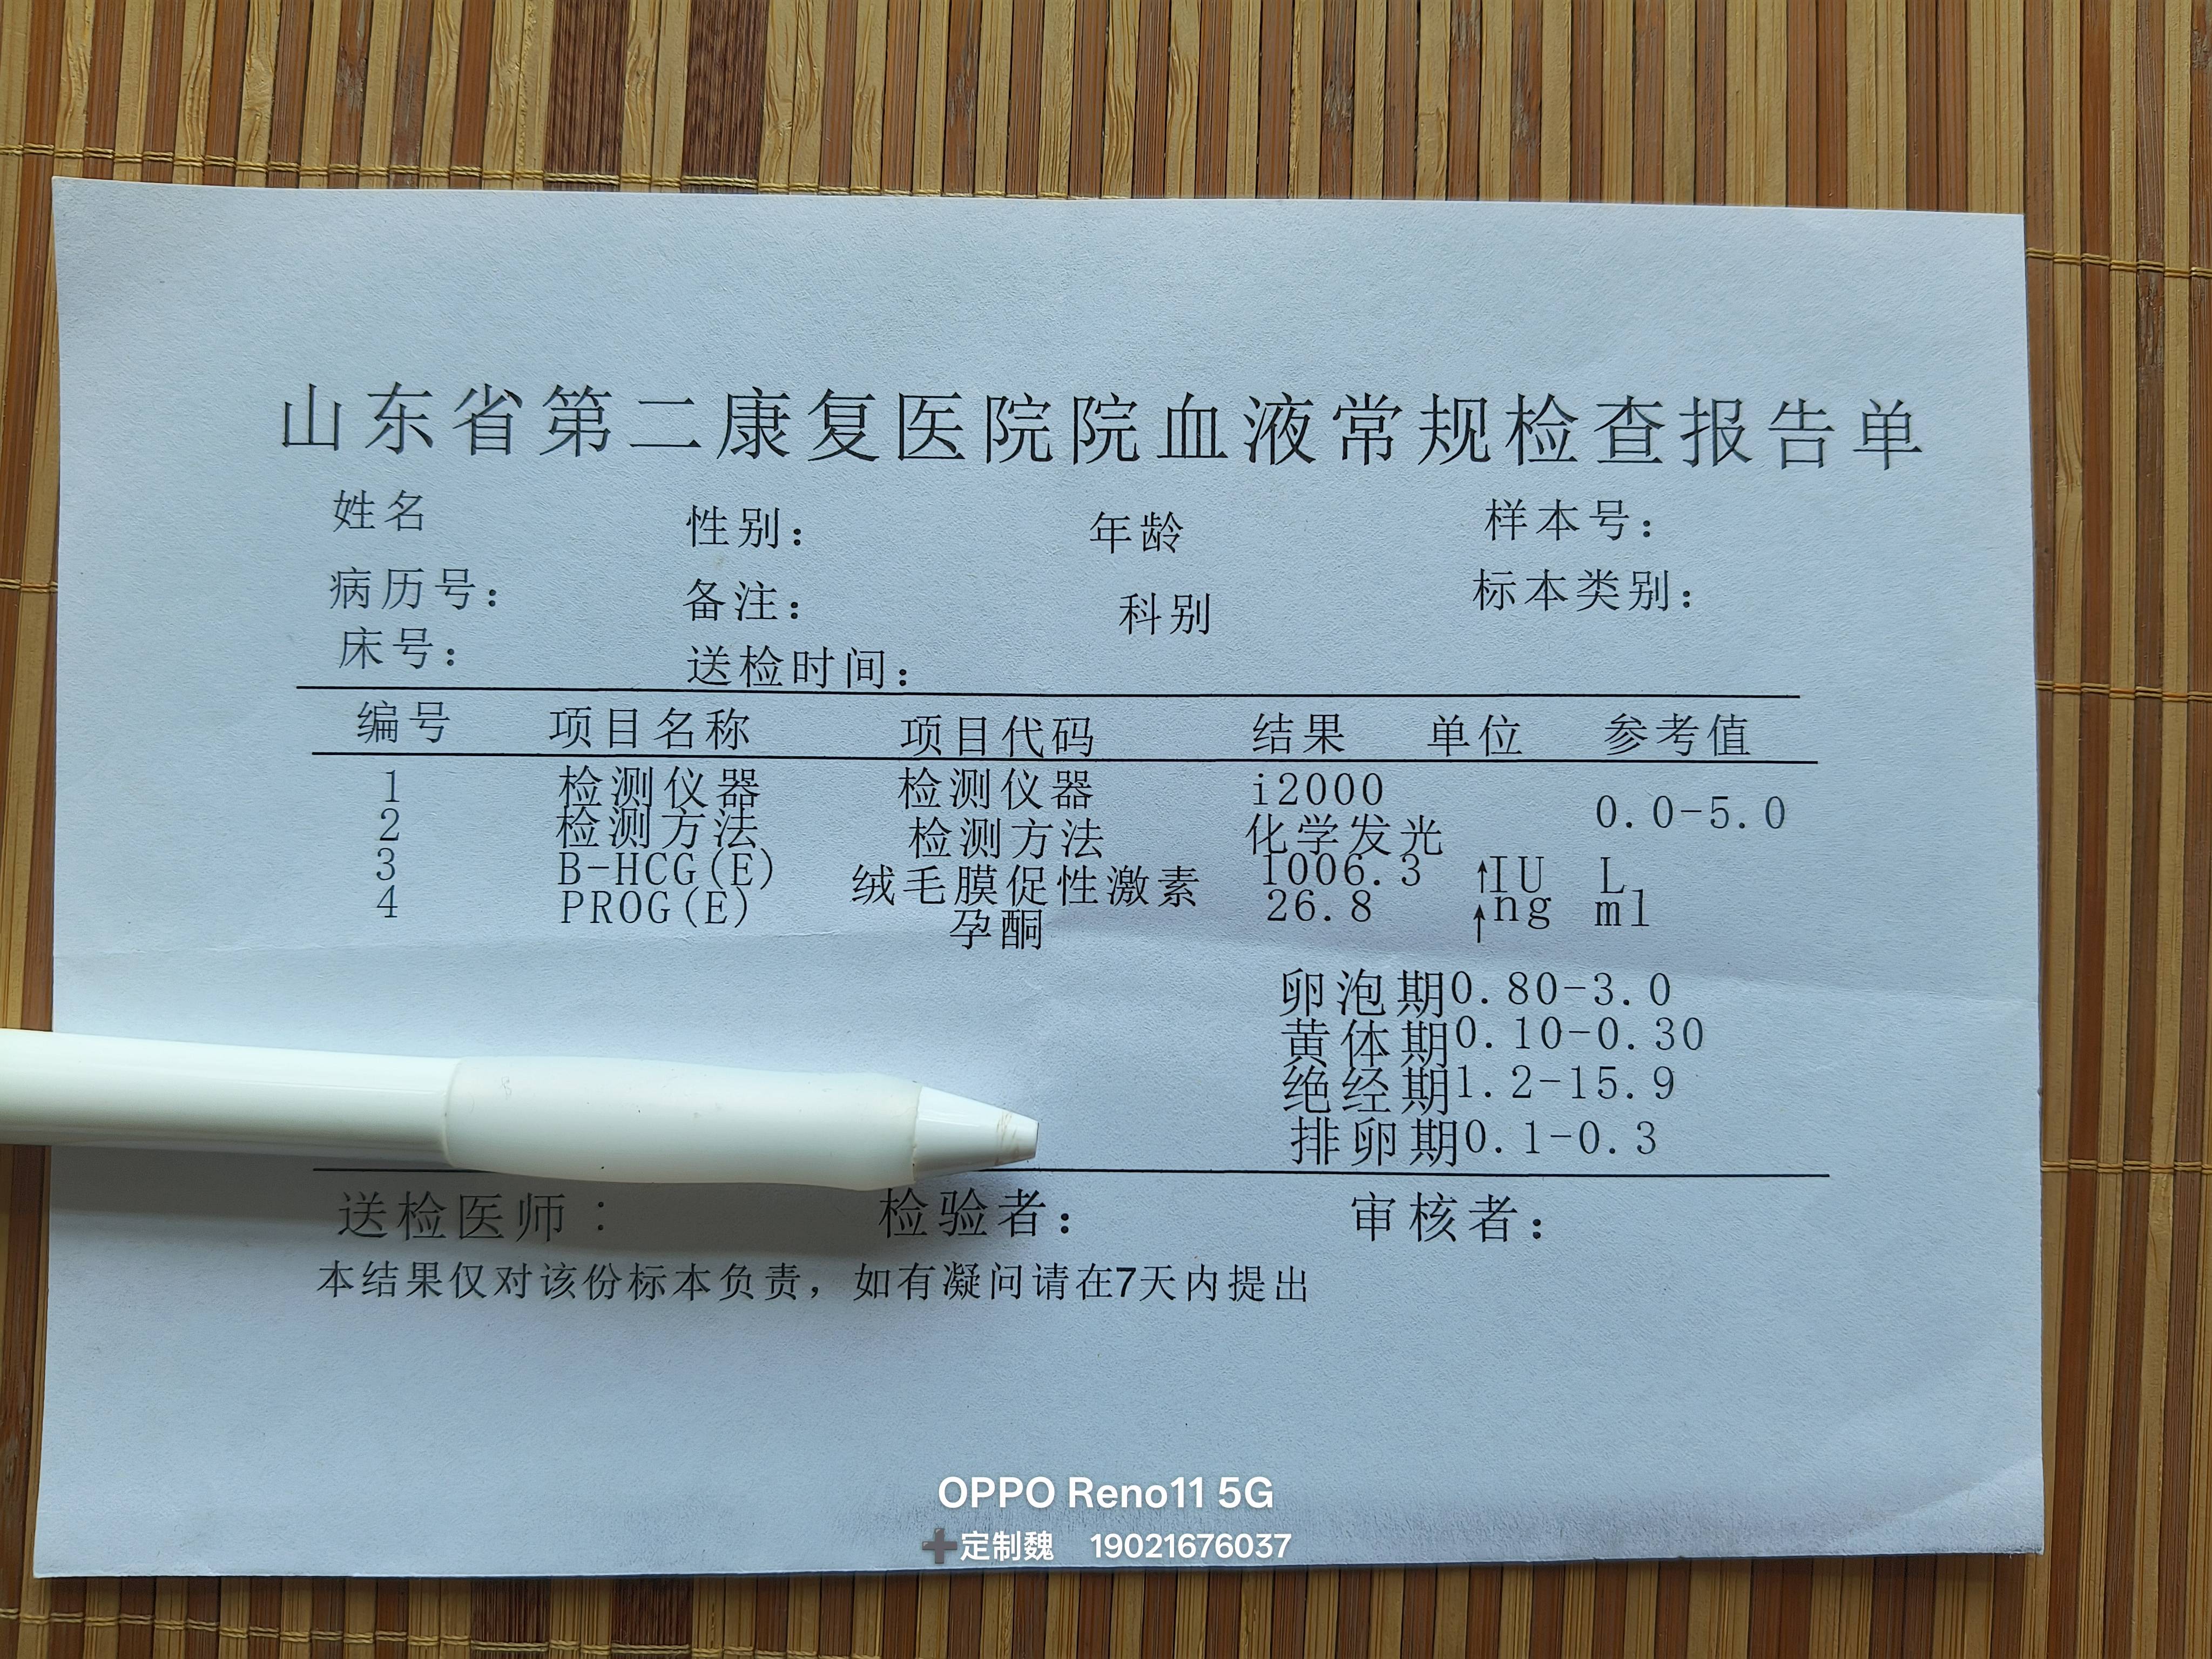 山东省第二康复医院院血液常规检查报告单
姓名 性别： 年龄 样本号：
病历号： 备注： 科别 标本类别：
床号： 送检时间：
编号 项目名称 项目代码 结果 单位 参考值
1 检测仪器 检测仪器 i2000 0.0-5.0
2 检测方法 检测方法 化学发光
3 B-HCG(E) 绒毛膜促性激素 1006.3 ↑IU L
4 PROG(E) 孕酮 26.8 ↑ng ml
卵泡期0.80-3.0
黄体期0.10-0.30
绝经期1.2-15.9
排卵期0.1-0.3
送检医师： 检验者： 审核者：
本结果仅对该份标本负责，如有凝问请在7天内提出
OPPO Reno11 5G
➕定制魏 19021676037